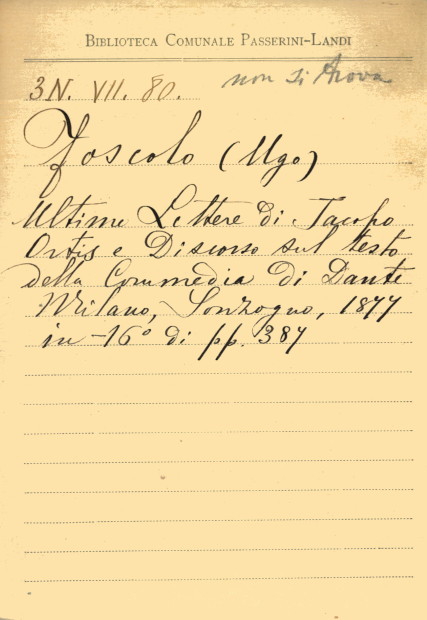 BIBLIOTECA COMUNALE PASSERINI-LANDI
3N. VII. 80. non si trova
Foscolo (Ugo)
Ultime Lettere di Jacopo
Ortis e Discorso sul testo
della Commedia di Dante
Milano, Sonzogno, 1877
in-16° di pp. 387